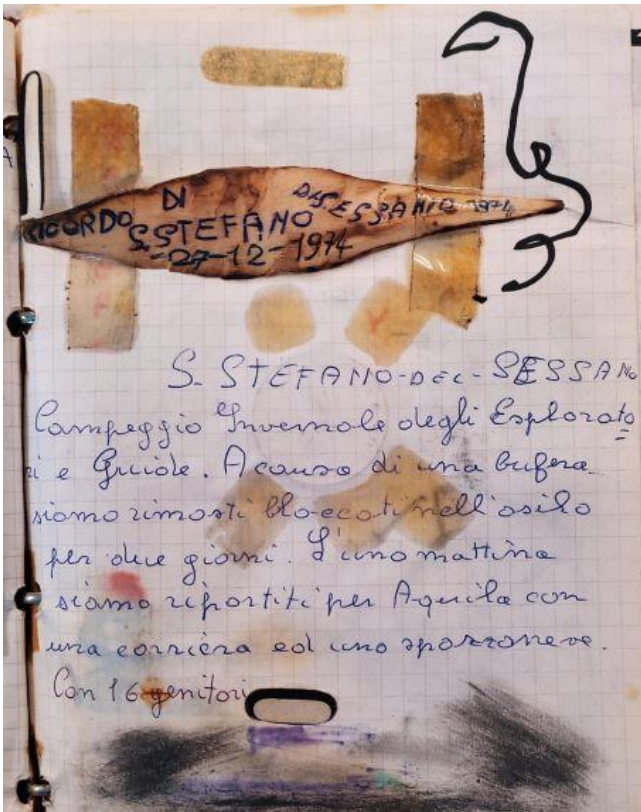 RICORDO DI
S. STEFANO
DISESSANIO 1974
-27-12-1974
S. STEFANO-DEL-SESSANO
Campeggio Invernale degli Esplorato
ri e Guide. A causa di una bufera
siamo rimasti bloccati nell'asilo
per due giorni. L'uno mattina
siamo ripartiti per Aquila con
una corriera ed uno spazzaneve.
Con 16 genitori